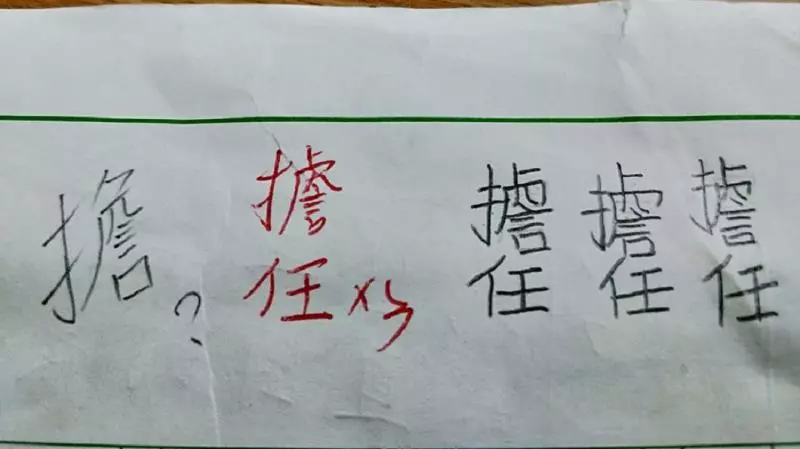 擔?
擔任x3
擔任
擔任
擔任